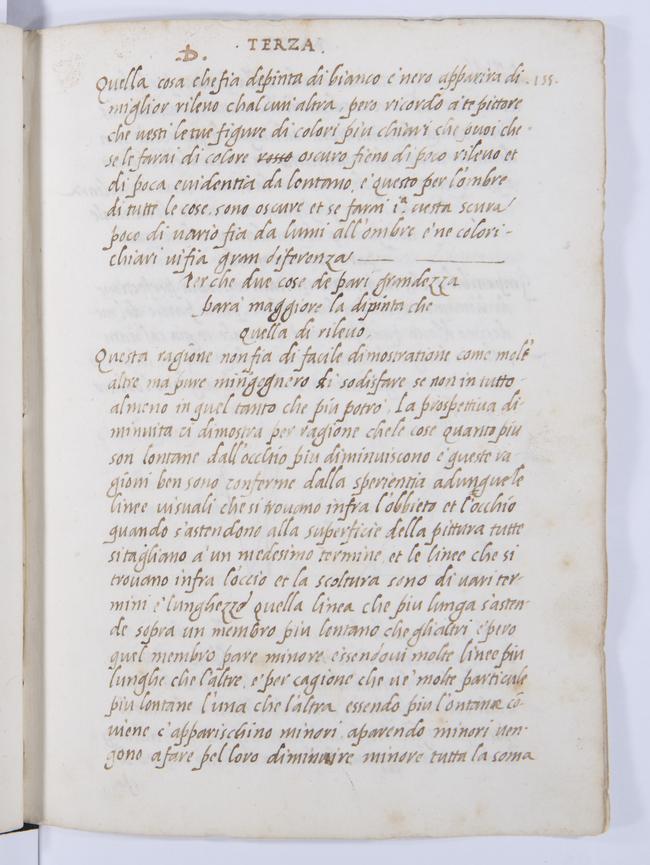 TERZA.
.D.
Quella cosa che fia depinta di bianco e nero apparira di 135.
miglior rilevo ch'alcun'altra, pero ricordo a te pittore
che vesti le tue figure di colori piu chiari che puoi che
se le farai di colore rosso oscuro fieno di poco rilevo et
di poca evidentia da lontano, e questo per l'ombre
di tutte le cose, sono oscure et se farai i.ª vesta scura
poco di vario fia da lumi all'ombre e ne colori
chiari vi fia gran diferenza
Perche due cose de pari grandezza
para maggiore la dipinta che
quella di rilevo.
Questa ragione non fia di facile dimostratione come molt
altre ma pure m'ingegnero di sodisfare se non in tutto
almeno in quel tanto che piu potro. La prospettiva di-
minuita ci dimostra per ragione che le cose quanto piu
son lontane dall'occhio piu diminuiscono e queste ra
gioni ben sono conferme dalla sperientia adunque le
linee visuali che si trovano infra l'obbieto et l'occhio
quando s'astendono alla superficie della pittura tutte
si tagliano a un medesimo termine, et le linee che si
trovano infra l'occio et la scoltura sono di vari ter-
mini e lunghezze quella linea che piu lunga s'asten-
de sopra un membro piu lontano che gli altri e pero
quel membro pare minore essendovi molte linee piu
lunghe che l'altre, e per cagione che ve molte particule
piu lontane l'una che l'altra essendo piu lontane co-
viene c'apparischino minori, aparendo minori ven-
gono a fare pel loro diminuire minore tutta la soma